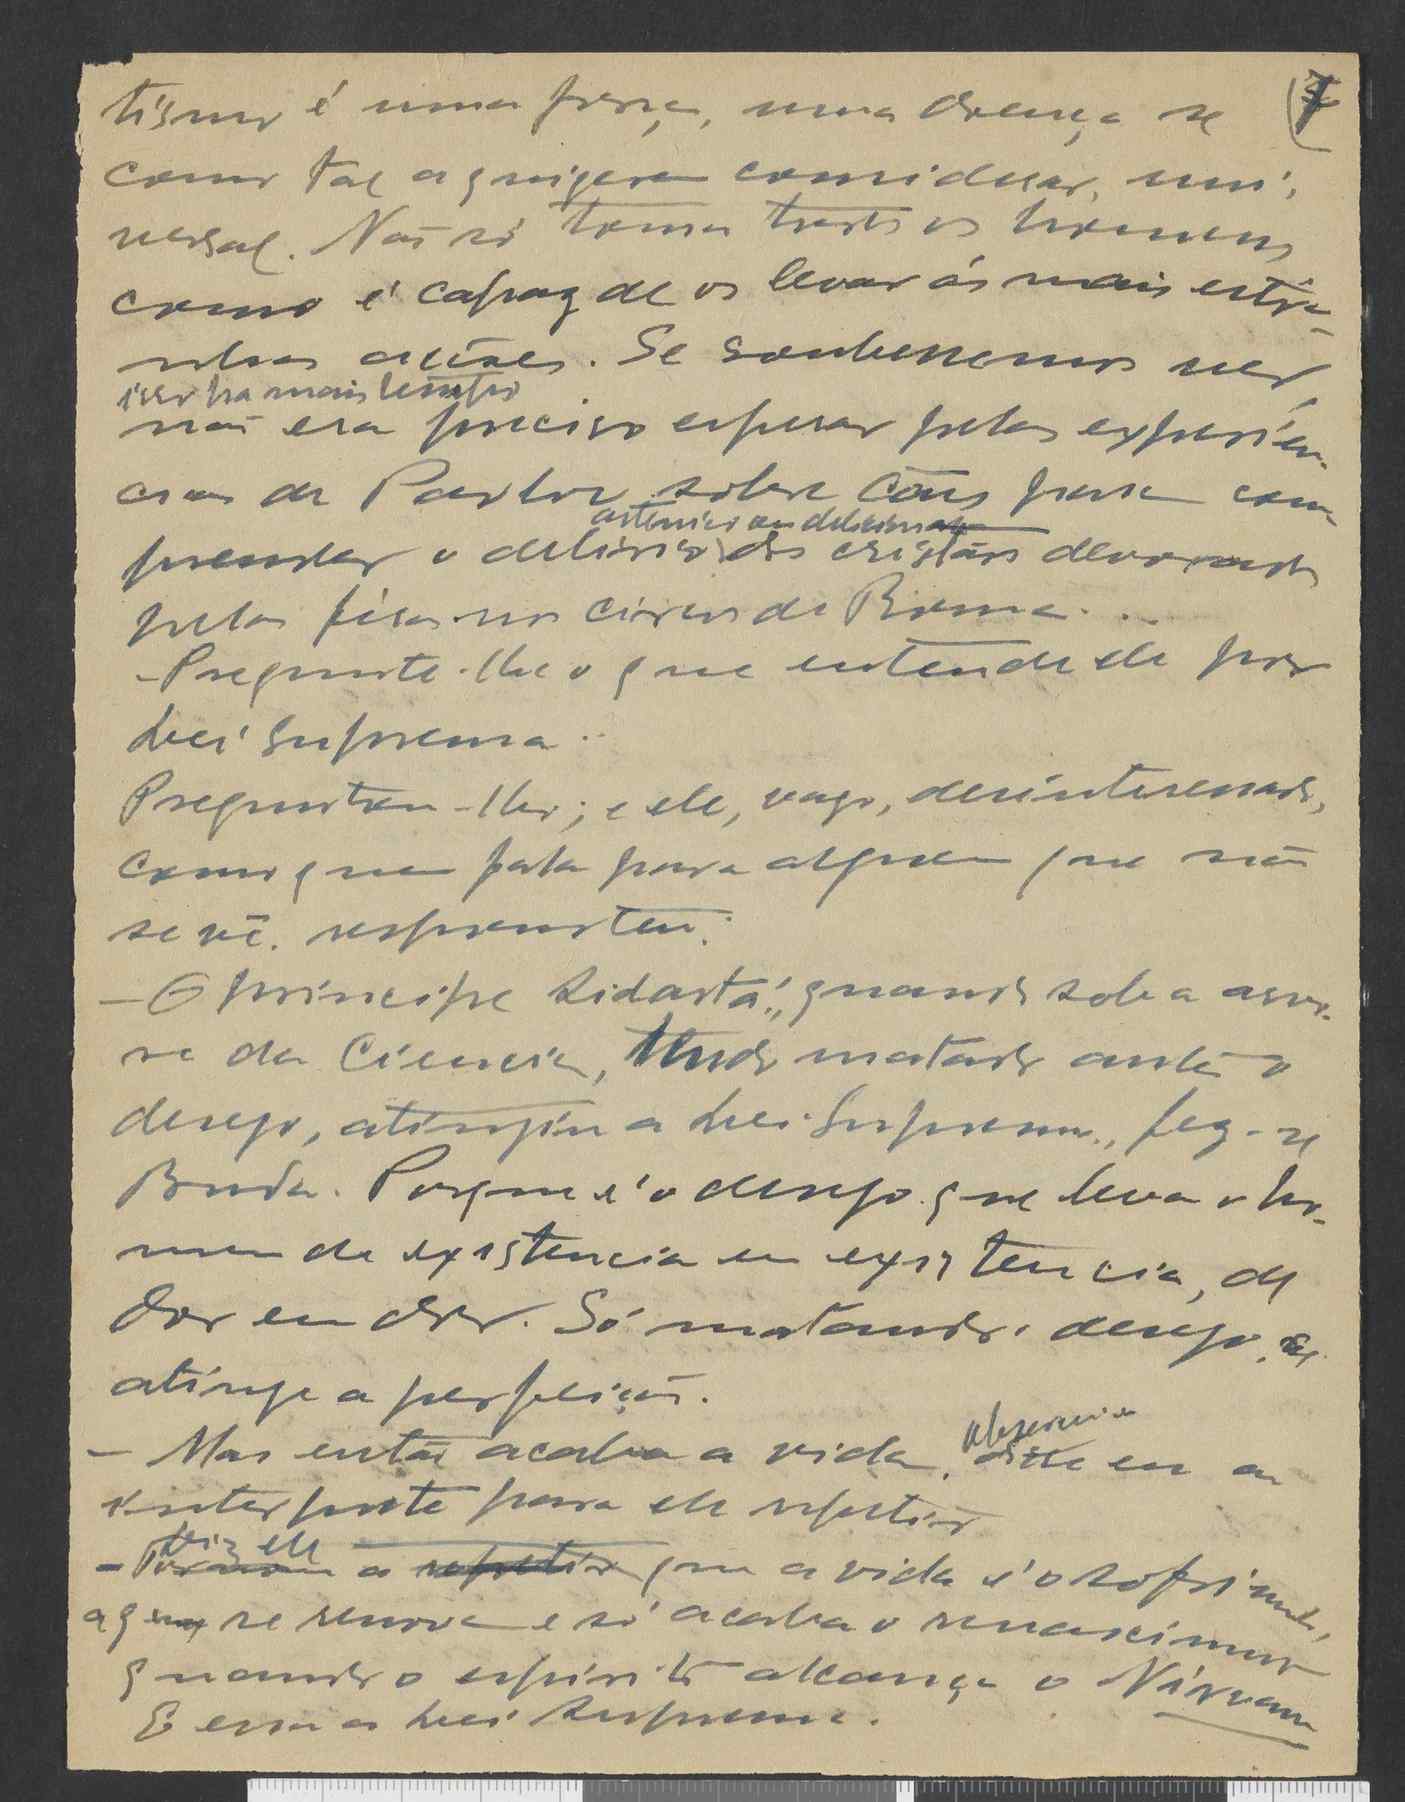 tismo é uma força, uma doença se
como tal a quizerem considerar, uni-
versal. Não só toma todos os homens
como é capaz de os levar ás mais estra-
nhas acções. Se soubessemos ver,
ver ha mais tempo
não era preciso esperar pelas experien-
cias de Pavlov sobre cães para com-
prender o delirio dos cristãos devorados
pelas féras nos circos de Roma...
- Pregunte-lhe o que entende ele por
Lei Suprema..
Preguntou-lho; e ele, vago, desinteressado,
como quem fala para alguem que não
se vê, respondeu:
- O principe Sidartá, quando sob a arvo-
re da Ciencia, tendo matado antes o
desejo, atingiu a Lei Suprema, fez-se
Buda. Porque é o desejo que leva o ho-
mem de existencia em existencia, de
dor em dor. Só matando o desejo se
atinge a perfeição.
- Mas então acaba a vida, disse eu ao
interprete para ele repetir
- Diz ele que a vida é o sofrimento,
a que se renova e só acaba o renascimento
quando o espirito alcança o Nirvana
E essa a Lei Suprema.